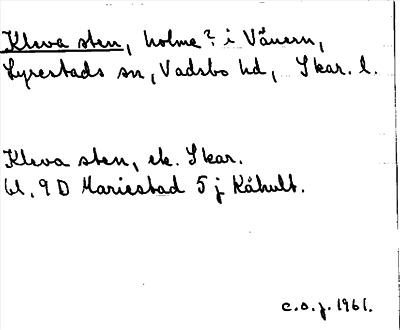 Kleva sten, holme? i Vänern,
Lyrestads sn, Vadsbo hd, Skar. l.
Kleva sten, ek. Skar.
bl. 9 D Mariestad 5 j Kåhult.
c.o.j. 1961.